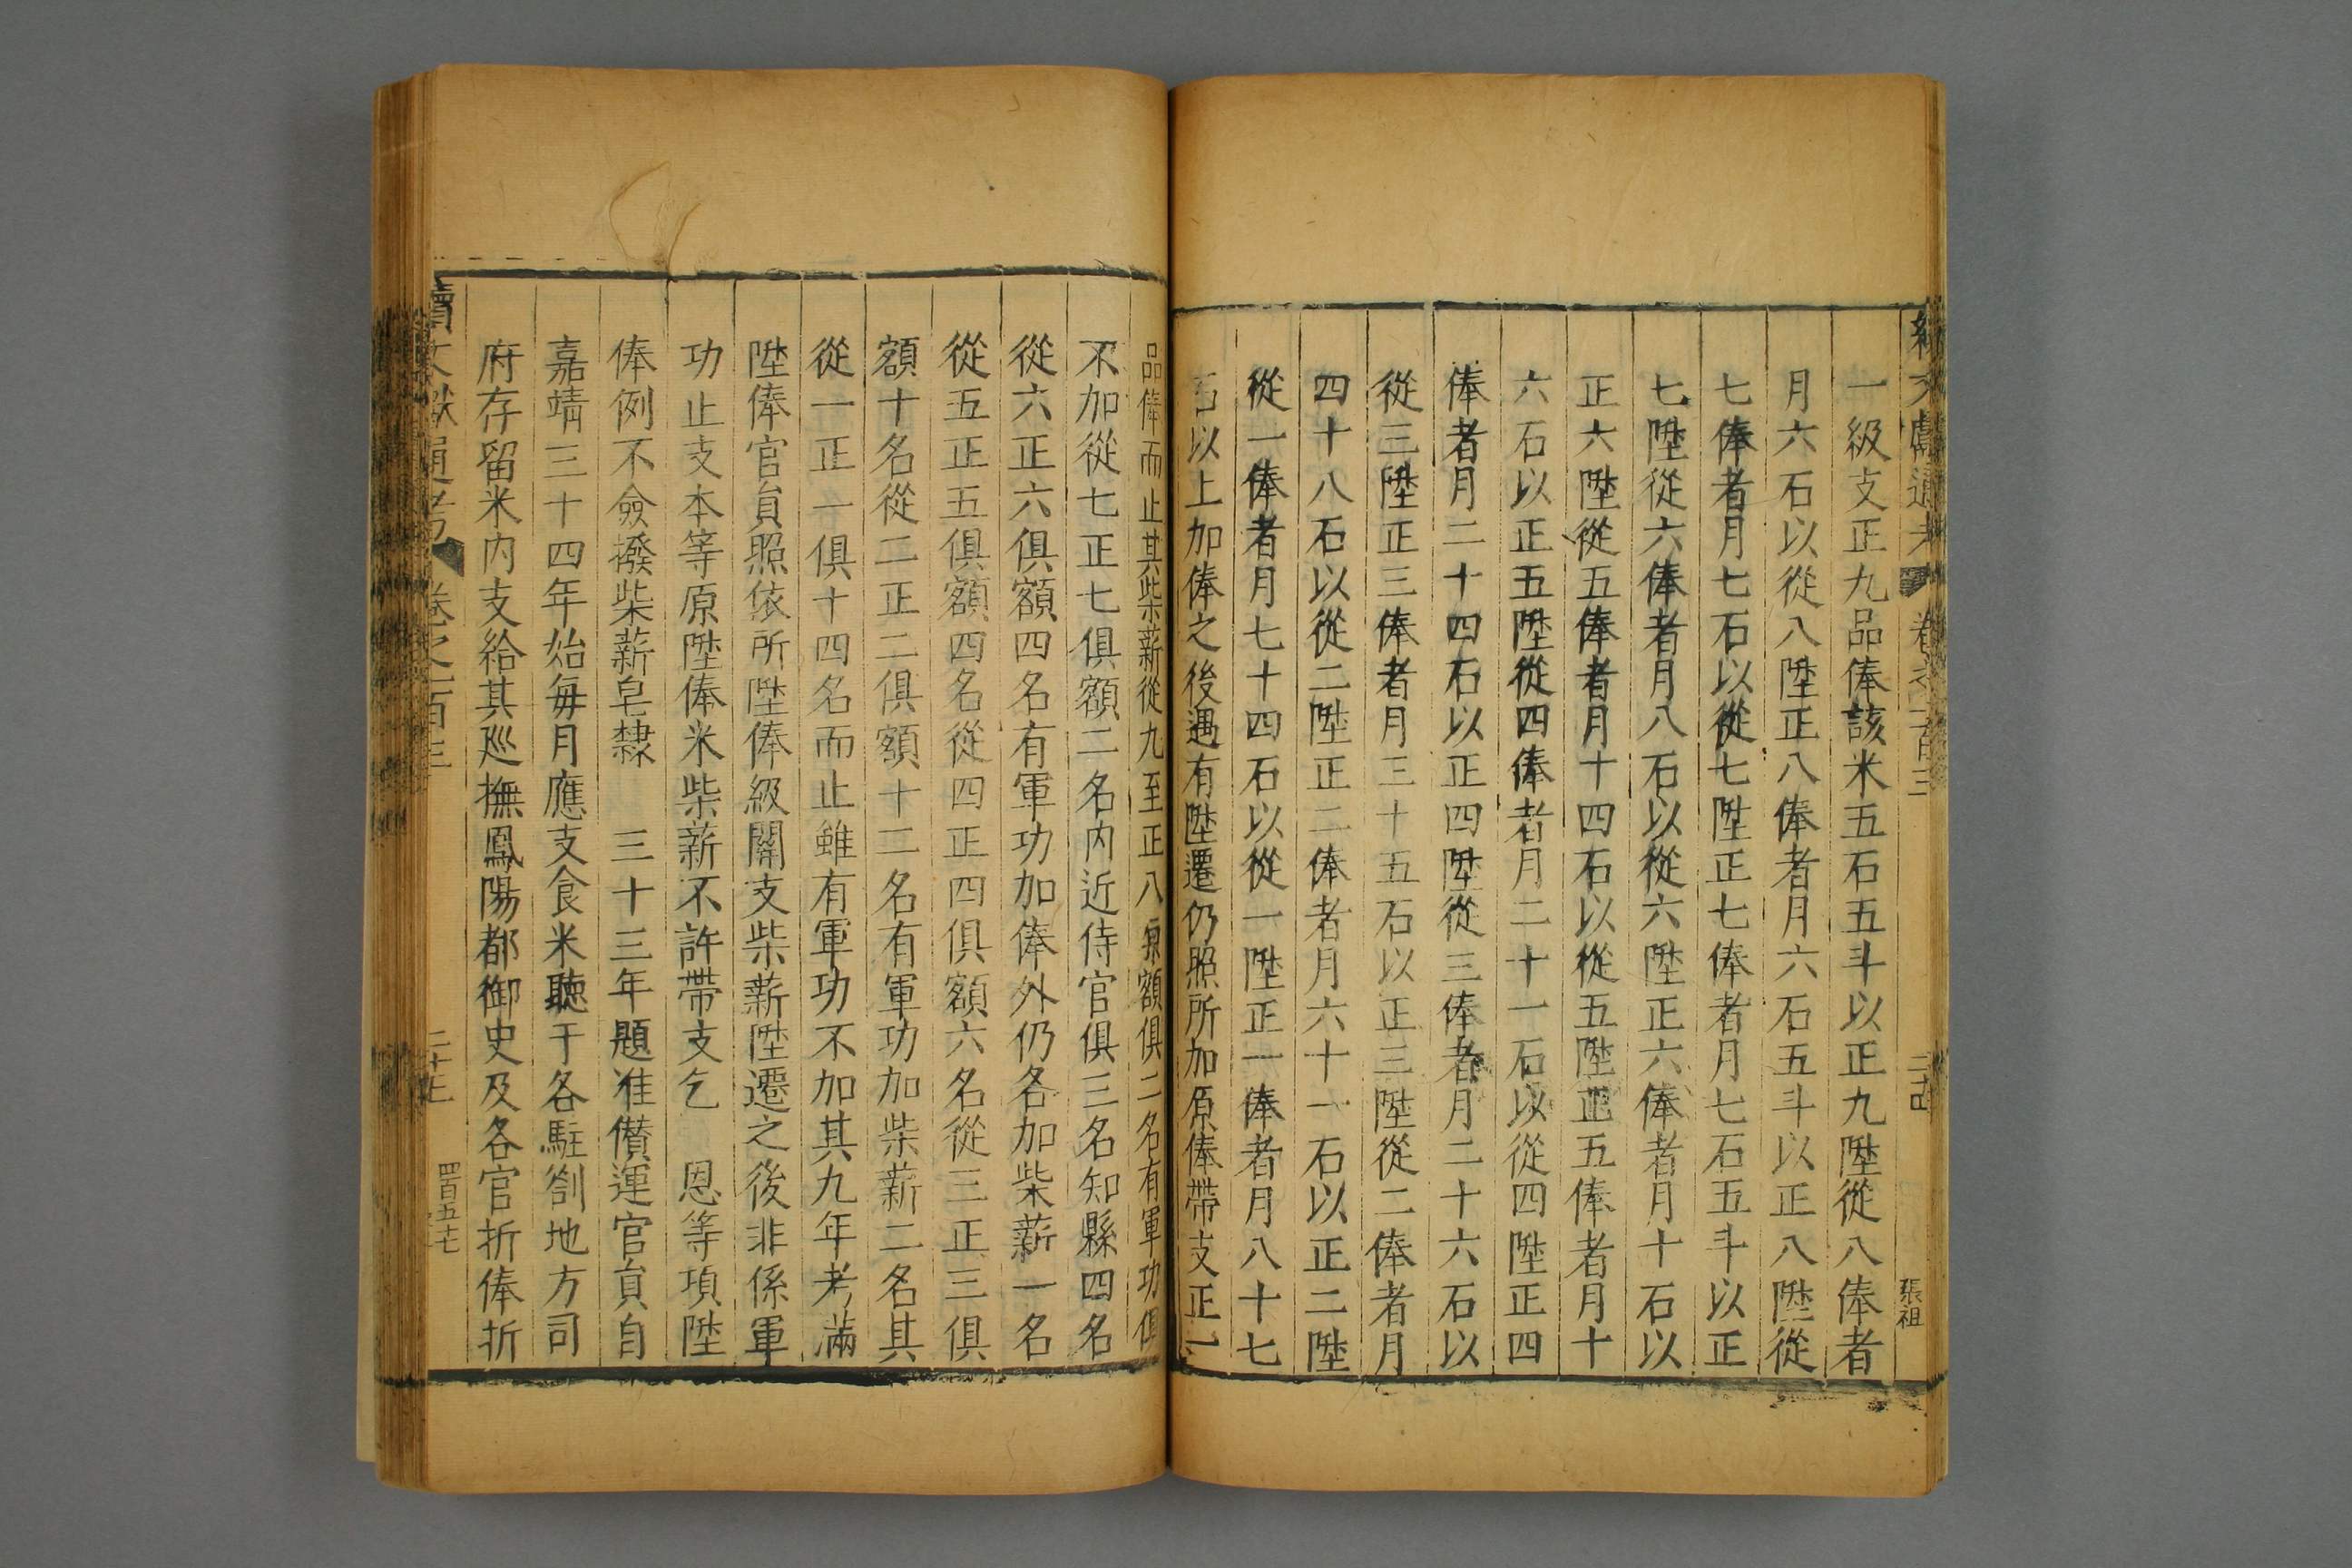 續文獻通考 卷之一百三 二十四 張祖
一級支正九品俸該米五石五斗以正九陞從八俸者
月六石以從八陞正八俸者月六石五斗以正八陞從
七俸者月七石以從七陞正七俸者月七石五斗以正
七陞從六俸者月八石以從六陞正六俸者月十石以
正六陞從五俸者月十四石以從五陞正五俸者月十
六石以正五陞從四俸者月二十一石以從四陞正四
俸者月二十四石以正四陞從三俸者月二十六石以
從三陞正三俸者月三十五石以正三陞從二俸者月
四十八石以從二陞正二俸者月六十一石以正二陞
從一俸者月七十四石以從一陞正一俸者月八十七
石以上加俸之後遇有陞遷仍照所加原俸帶支正一
品俸而止其柴薪從九至正八原額俱二名有軍功俱
不加從七正七俱額二名內近侍官俱三名知縣四名
從六正六俱額四名有軍功加俸外仍各加柴薪一名
從五正五俱額四名從四正四俱額六名從三正三俱
額十名從二正二俱額十二名有軍功加柴薪二名其
從一正一俱十四名而止雖有軍功不加其九年考滿
陞俸官員照依所陞俸級關支柴薪陞遷之後非係軍
功止支本等原陞俸米柴薪不許帶支乞 恩等項陞
俸例不僉撥柴薪皂隸 三十三年題准儹運官員自
嘉靖三十四年始每月應支食米聽于各駐劄地方司
府存留米內支給其廵撫鳳陽都御史及各官折俸折
續文獻通考 卷之一百三 四百五十七